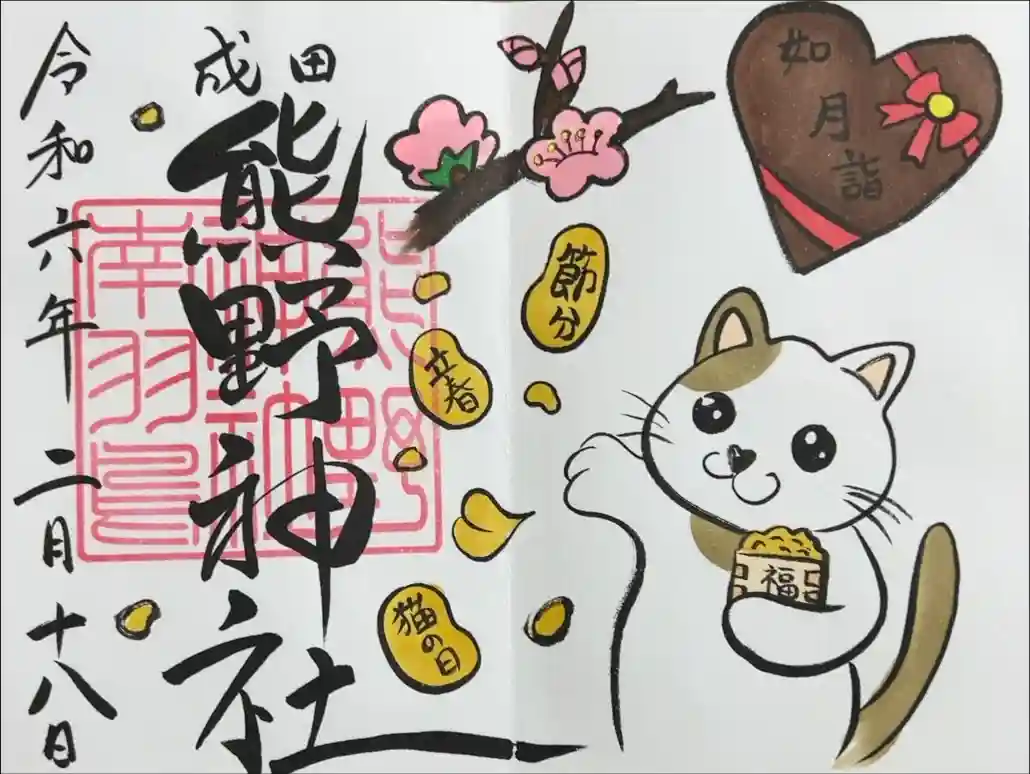 如月詣
節分
立春
猫の日
福
成田
熊野神社
令和六年 二月十八日
熊野
南羽